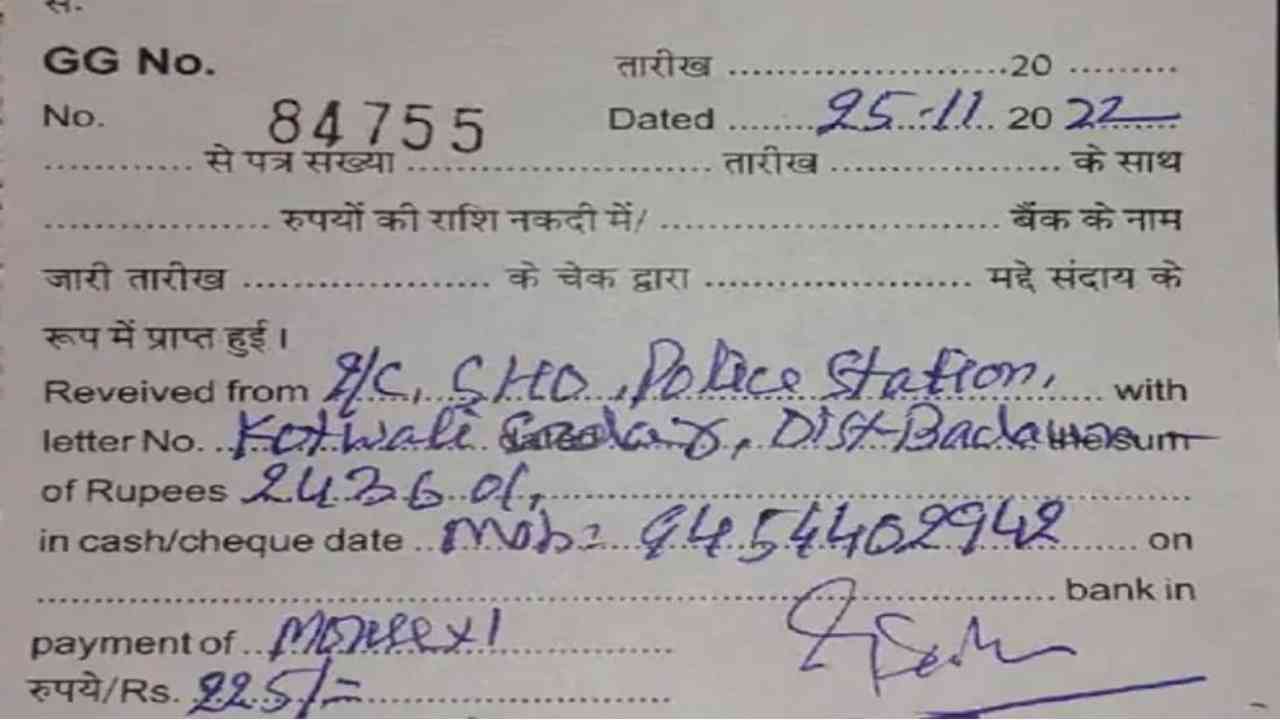 सं.
GG No. तारीख ..............................20 .........
No. 84755 Dated ........25-11..20 22
.............. से पत्र संख्या .............................. तारीख ....................... के साथ
....................... रुपयों की राशि नकदी में/ .................................. बैंक के नाम
जारी तारीख ........................ के चेक द्वारा .......................... मद्दे संदाय के
रूप में प्राप्त हुई।
Reveived from I/C, SHO, Police Station, .... with
letter No. ..Kotwali Sadar, Dist-Badaun the sum
of Rupees 2436 01,..............................
in cash/cheque date ..Mob: 9454402942........ on
.................................................................. bank in
payment of ..Mouse x 1...................
रुपये/Rs. 225/=..............................